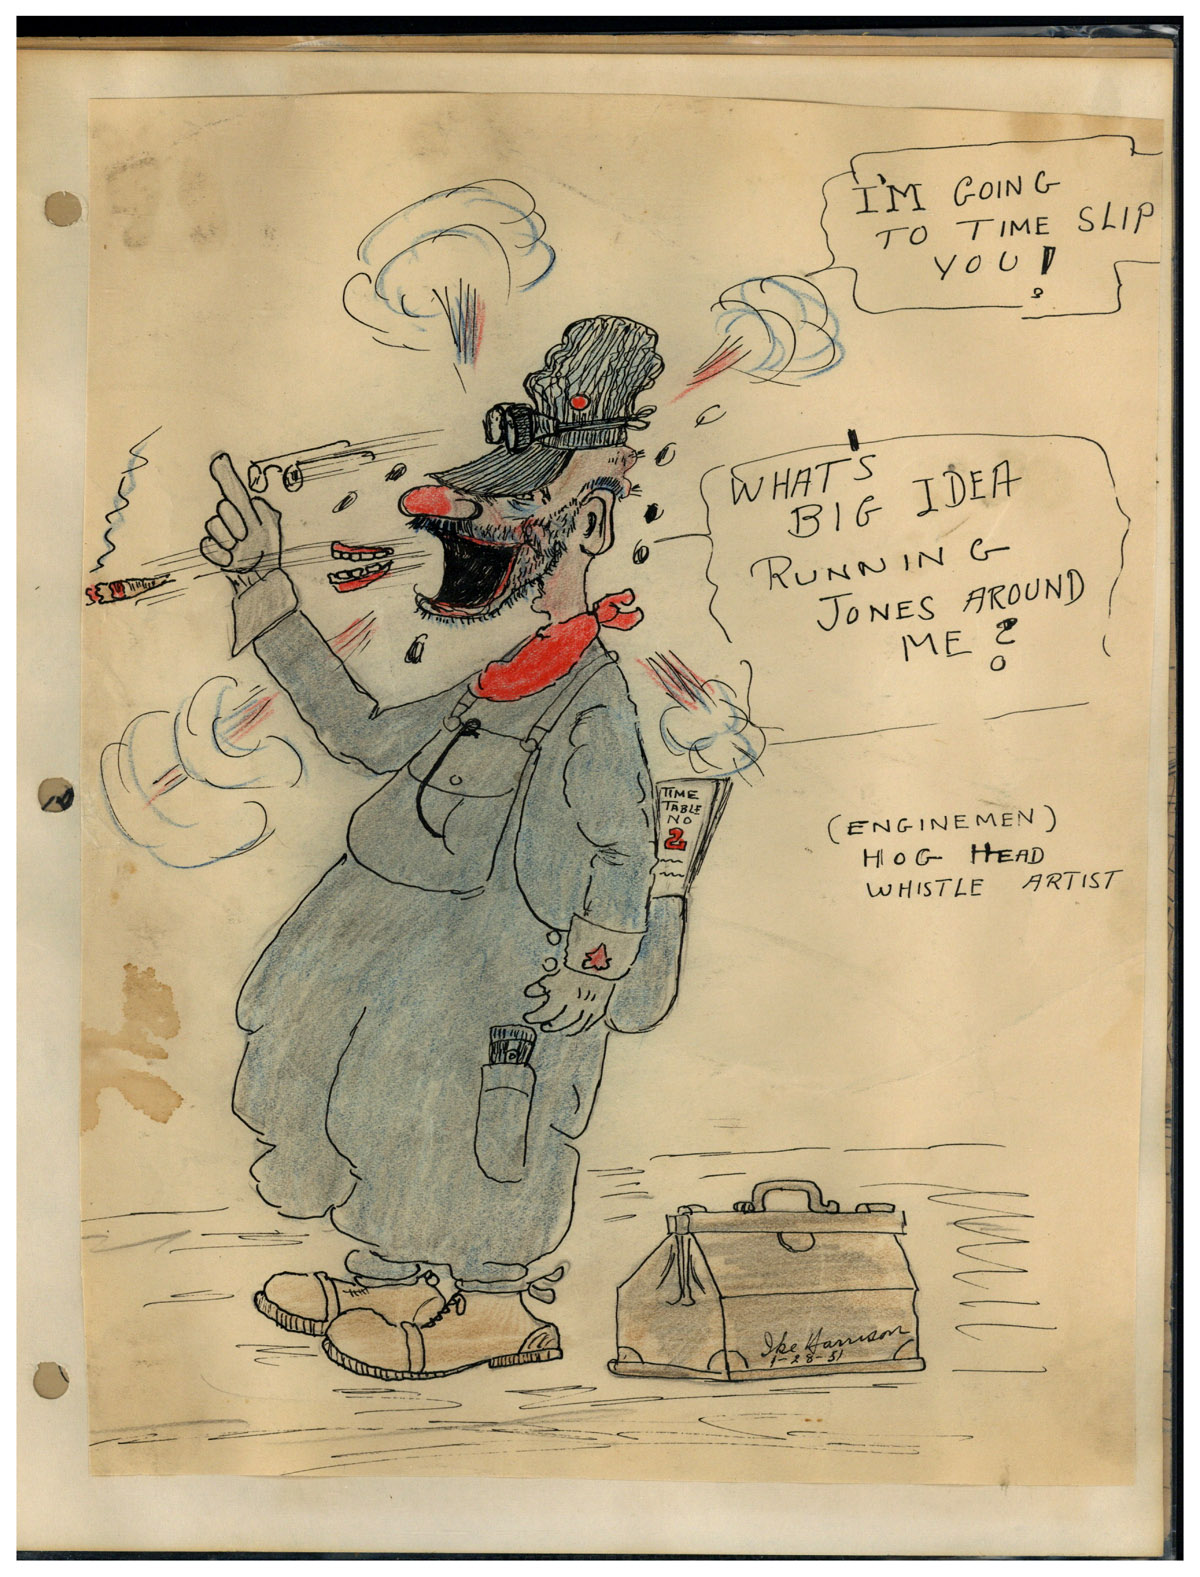 I'M GOING
TO TIME SLIP
YOU!
WHAT'S
BIG IDEA
RUNNING
JONES AROUND
ME?
TIME
TABLE
NO
2
(ENGINEMEN)
HOG HEAD
WHISTLE ARTIST
Ike Harrison
1-28-51